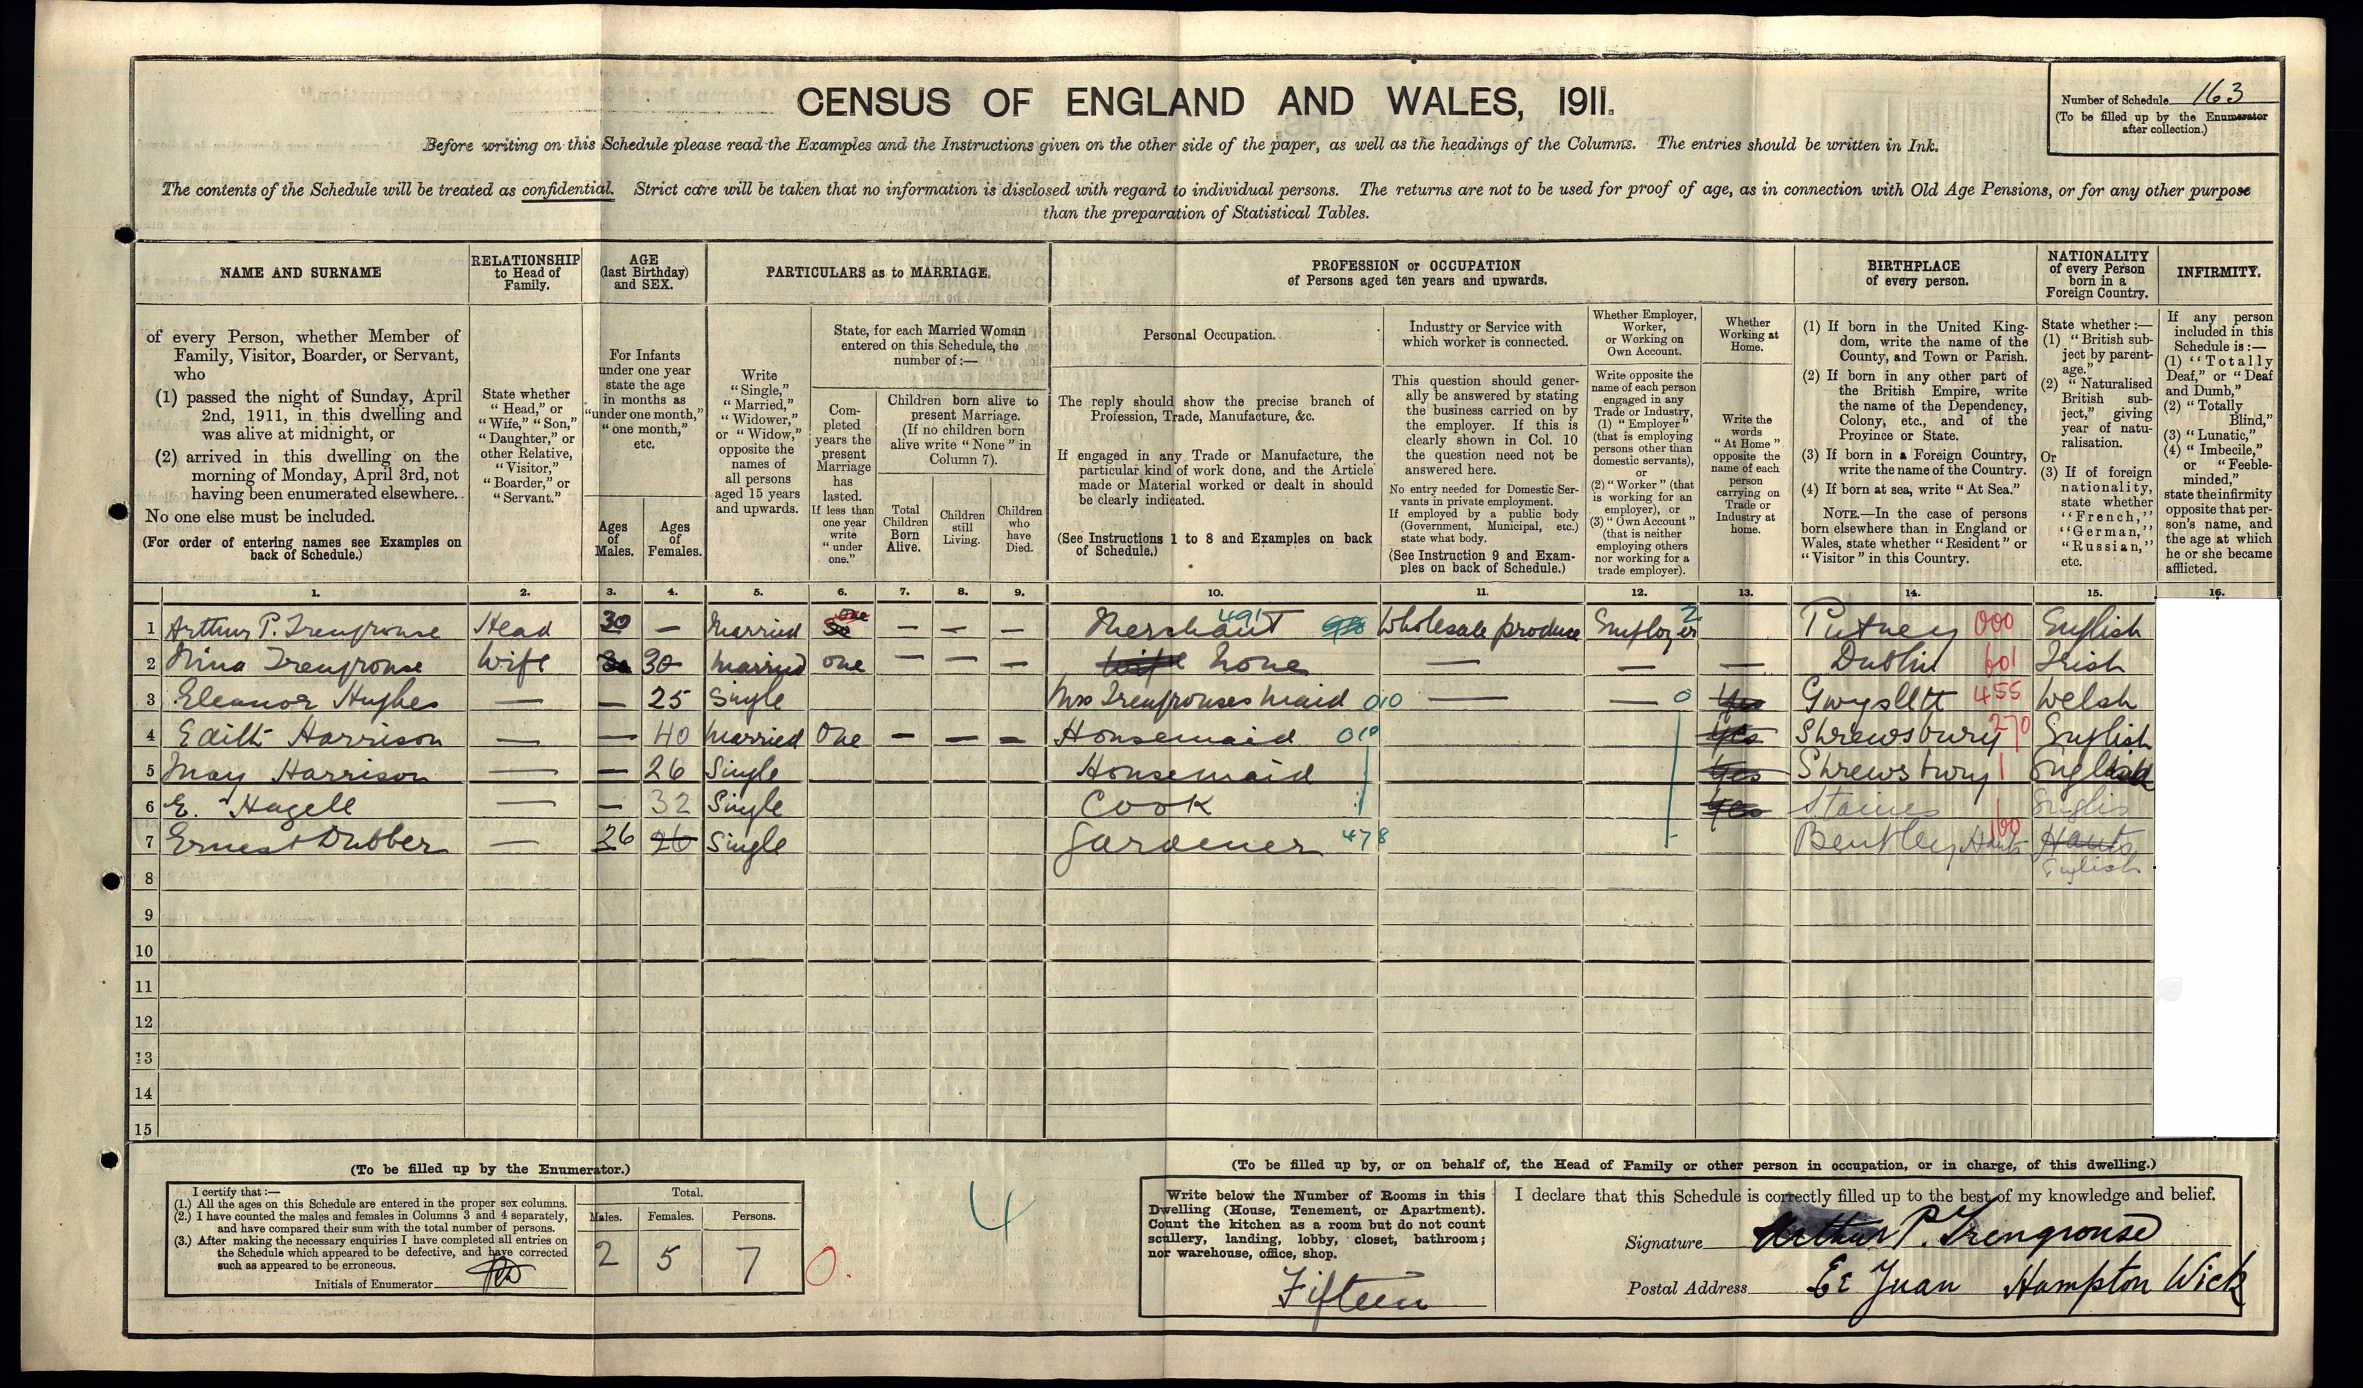 CENSUS OF ENGLAND AND WALES, 1911.
Number of Schedule 163
(To be filled up by the Enumerator
after collection.)
Before writing on this Schedule please read the Examples and the Instructions given on the other side of the paper, as well as the headings of the Columns. The entries should be written in Ink.
The contents of the Schedule will be treated as confidential. Strict care will be taken that no information is disclosed with regard to individual persons. The returns are not to be used for proof of age, as in connection with Old Age Pensions, or for any other purpose
than the preparation of Statistical Tables.
NAME AND SURNAME
of every Person, whether Member of
Family, Visitor, Boarder, or Servant,
who
(1) passed the night of Sunday, April
2nd, 1911, in this dwelling and
was alive at midnight, or
(2) arrived in this dwelling on the
morning of Monday, April 3rd, not
having been enumerated elsewhere.
No one else must be included.
(For order of entering names see Examples on
back of Schedule.)
RELATIONSHIP
to Head of
Family.
State whether
"Head," or
"Wife," "Son,"
"Daughter," or
other Relative,
"Visitor,"
"Boarder," or
"Servant."
AGE
(last Birthday)
and SEX.
For Infants
under one year
state the age
in months as
"under one month,"
"one month,"
etc.
Ages
of
Males.
Ages
of
Females.
PARTICULARS as to MARRIAGE.
Write
"Single,"
"Married,"
"Widower,"
or "Widow,"
opposite the
names of
all persons
aged 15 years
and upwards.
State, for each Married Woman
entered on this Schedule, the
number of:—
Com-
pleted
years the
present
Marriage
has
lasted.
If less than
one year
write
"under
one."
Children born alive to
present Marriage.
(If no children born
alive write "None" in
Column 7).
Total
Children
Born
Alive.
Children
still
Living.
Children
who
have
Died.
PROFESSION or OCCUPATION
of Persons aged ten years and upwards.
Personal Occupation.
The reply should show the precise branch of
Profession, Trade, Manufacture, &c.
If engaged in any Trade or Manufacture, the
particular kind of work done, and the Article
made or Material worked or dealt in should
be clearly indicated.
(See Instructions 1 to 8 and Examples on back
of Schedule.)
Industry or Service with
which worker is connected.
This question should gener-
ally be answered by stating
the business carried on by
the employer. If this is
clearly shown in Col. 10
the question need not be
answered here.
No entry needed for Domestic Ser-
vants in private employment.
If employed by a public body
(Government, Municipal, etc.)
state what body.
(See Instruction 9 and Exam-
ples on back of Schedule.)
Whether Employer,
Worker,
or Working on
Own Account.
Write opposite the
name of each person
engaged in any
Trade or Industry,
(1) "Employer"
(that is employing
persons other than
domestic servants),
or
(2) "Worker" (that
is working for an
employer), or
(3) "Own Account"
(that is neither
employing others
nor working for a
trade employer).
Whether
Working at
Home.
Write the
words
"At Home"
opposite the
name of each
person
carrying on
Trade or
Industry at
home.
BIRTHPLACE
of every person.
(1) If born in the United King-
dom, write the name of the
County, and Town or Parish.
(2) If born in any other part of
the British Empire, write
the name of the Dependency,
Colony, etc., and of the
Province or State.
(3) If born in a Foreign Country,
write the name of the Country.
(4) If born at sea, write "At Sea."
NOTE.—In the case of persons
born elsewhere than in England or
Wales, state whether "Resident" or
"Visitor" in this Country.
NATIONALITY
of every Person
born in a
Foreign Country.
State whether:—
(1) "British sub-
ject by parent-
age."
(2) "Naturalised
British sub-
ject," giving
year of natu-
ralisation.
Or
(3) If of foreign
nationality,
state whether
"French,"
"German,"
"Russian,"
etc.
INFIRMITY.
If any person
included in this
Schedule is:—
(1) "Totally
Deaf," or "Deaf
and Dumb,"
(2) "Totally
Blind,"
(3) "Lunatic,"
(4) "Imbecile,"
or "Feeble-
minded,"
state the infirmity
opposite that per-
son's name, and
the age at which
he or she became
afflicted.
1. 2. 3. 4. 5. 6. 7. 8. 9. 10. 11. 12. 13. 14. 15. 16.
1 Arthur P. Trengrouse Head 30 — Married One — — — Merchant 491 Wholesale produce Employer 2 Putney 000 English
2 Nina Trengrouse Wife 30 Married one — — — None — — — Dublin 601 Irish
3 Eleanor Hughes — — 25 Single Mrs Trengrouses maid 010 — — 0 Yes 455 Welsh
4 Edith Harrison — — 40 Married One — — — Housemaid 010 Yes Shrewsbury 270 English
5 May Harrison — — 26 Single Housemaid Yes Shrewsbury English
6 E. Hagell — — 32 Single Cook Yes Staines Englis
7 Ernest Dubber — 26 26 Single Gardener 478 Bentley Hants 160 Hants
English
8
9
10
11
12
13
14
15
(To be filled up by the Enumerator.)
I certify that:—
(1.) All the ages on this Schedule are entered in the proper sex columns.
(2.) I have counted the males and females in Columns 3 and 4 separately,
and have compared their sum with the total number of persons.
(3.) After making the necessary enquiries I have completed all entries on
the Schedule which appeared to be defective, and have corrected
such as appeared to be erroneous.
Initials of Enumerator
Total.
Males. Females. Persons.
2 5 7
0.
4
(To be filled up by, or on behalf of, the Head of Family or other person in occupation, or in charge, of this dwelling.)
Write below the Number of Rooms in this
Dwelling (House, Tenement, or Apartment).
Count the kitchen as a room but do not count
scullery, landing, lobby, closet, bathroom;
nor warehouse, office, shop.
Fifteen
I declare that this Schedule is correctly filled up to the best of my knowledge and belief.
Signature Arthur P. Trengrouse
Postal Address Juan Hampton Wick